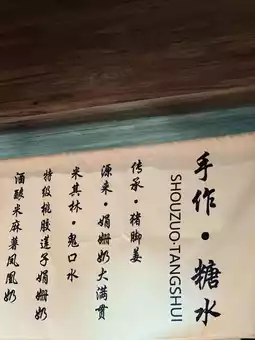 手作·糖水
SHOUZUO·TANGSHUI
传承·猪脚姜
源来·娟姗奶大满贯
米其林·鬼口水
特级桃胶莲子娟姗奶
酒酿米麻薯凤凰奶